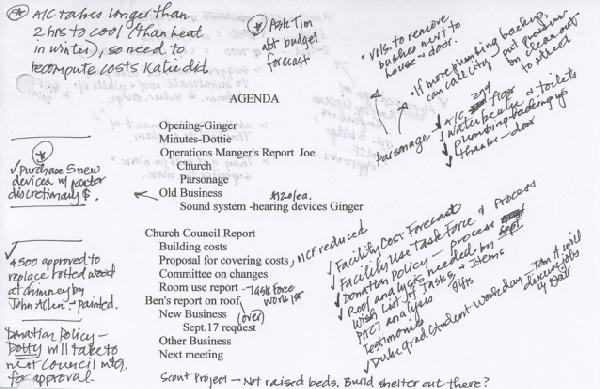 * A/C takes longer than
2 hrs to cool (than heat
in winter), so need to
recompute costs Katie did.
* Ask Tim
abt budget
forecast
• Vols. to remove
bushes next to
house + door.
• If more plumbing backup,
can call city
put
by cleanout
to street
AGENDA
Opening-Ginger
Minutes-Dottie
Operations Manger's Report Joe
Church
Parsonage
Old Business
$120/ea.
Sound system -hearing devices Ginger
Parsonage - A/C 2nd floor
✓ Water heater + toilets
✓ plumbing backing up
✓ door
*
✓ Purchase 5 new
devices w/ pastor
discretionary $.
Church Council Report
Building costs
Proposal for covering costs, NCF reduced
Committee on changes
Room use report - Task force
Ben's report on roof, work 1st
New Business
(over)
Sept.17 request
Other Business
Next meeting
✓
4500 approved to
replace rotted wood
at chimney by
John Allen - painted.
Donation Policy -
Dotty will take to
next Council mtg.
for approval.
✓ Facility Cost Forecast
✓ Facility Use Task Force + Process
✓ Donation Policy - Process
✓ Roof analysis needed by Sept
Wish List of Tasks + Items
PACT analysis
Gifts
Testimonies
✓ Duke grad student Workday - John A will
discuss jobs
Scout Project - Not raised beds. Build shelter out there?